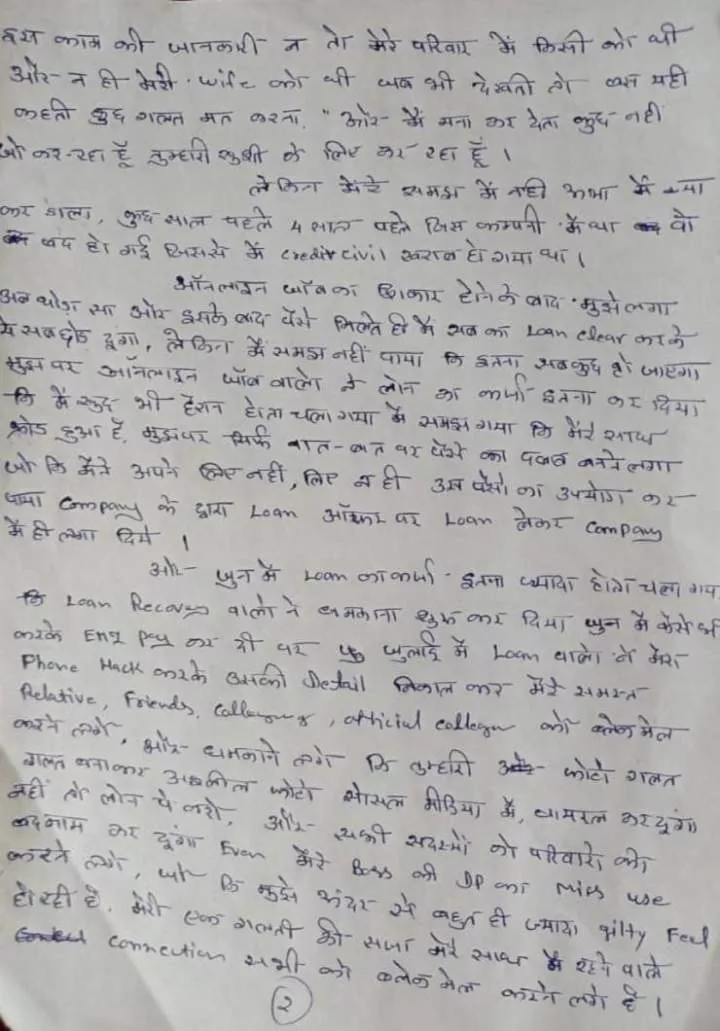 इस काम की जानकारी न तो मेरे परिवार में किसी को थी
और न ही मेरी wife को थी जब भी देखती तो बस यही
कहती कुछ गलत मत करना, "और मैं मना कर देता कुछ नही
जो कर रहा हूँ तुम्हारी खुशी के लिए कर रहा हूँ।
लेकिन मेरे समझ में नही आया मैं क्या
कर डाला, कुछ साल पहले 4 साल पहले जिस कम्पनी में था वो
बंद हो गई जिससे मैं credit civil खराब हो गया था।
ऑनलाइन जॉब का शिकार होने के बाद मुझे लगा
अब थोड़ा सा और इसके बाद पैसे मिलते ही मैं सब का Loan clear करके
ये सब छोड़ दूंगा, लेकिन मैं समझ नहीं पाया कि इतना सबकुछ हो जाएगा
मुझ पर ऑनलाइन जॉब वालो ने लोन का कर्जा इतना कर दिया
कि मैं खुद भी हैरान होता चला गया मैं समझ गया कि मेरे साथ
फ्रोड हुआ है, मुझपर सिर्फ बात-बात पर पैसे का दबाब बनने लगा
जो कि मैंने अपने लिए नहीं, लिए न ही उस पैसो का उपयोग कर
पाया Company के द्वारा Loan ऑफर पर Loan लेकर Company
में ही लगा दिये।
और जुन में Loan का कर्जा इतना ज्यादा होता चला गया
कि Loan Recovery वालो ने धमकाना शुरू कर दिया जुन में कैसे भी
करके EMI Pay कर दी पर जुलाई में Loan वालो ने मेरा
Phone Hack करके उसकी Detail निकाल कर मेरे समस्त
Relative, Friends, Colleagues, official collegue को ब्लेकमेल
करने लगे, और धमकाने लगे कि तुम्हारी फोटो गलत
गलत बनाकर अश्लील फोटो सोसल मीडिया में, वायरल कर दूंगा
नहीं तो लोन पे करो, और सभी सदस्यों को परिवारो को
बदनाम कर दूंगा Even मेरे Boss की DP का Miss use
करने लगे, जो कि मुझे अंदर से बहुत ही ज्यादा gilty Feel
हो रही है, मेरी एक गलती की सजा मेरे साथ में रहने वाले
connection सभी को ब्लेकमेल करने लगे है।
2